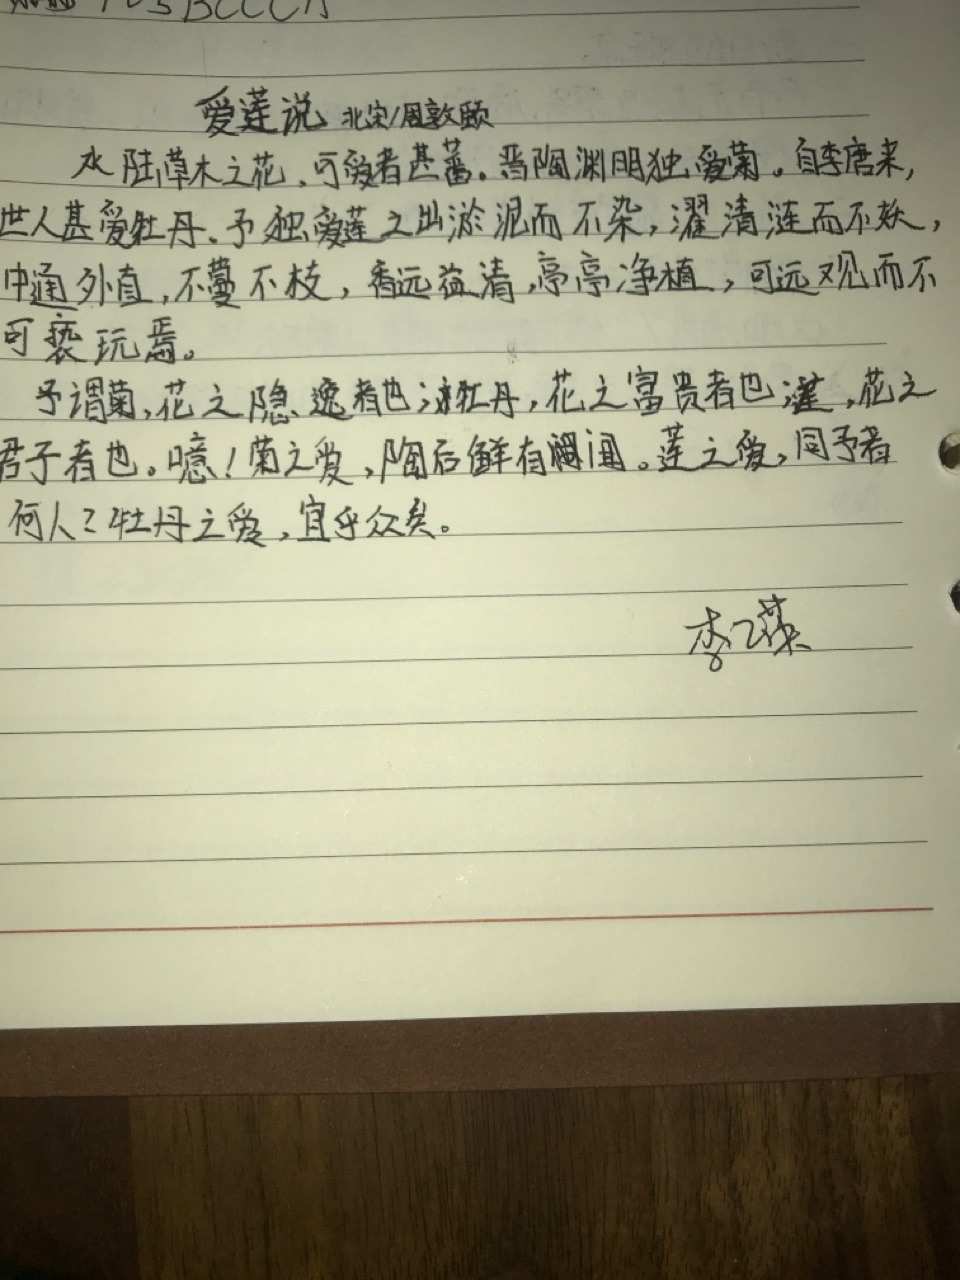 爱莲说 北宋/周敦颐
水陆草木之花、可爱者甚蕃。晋陶渊明独爱菊。自李唐来,
世人甚爱牡丹、予独爱莲之出淤泥而不染,濯清涟而不妖,
中通外直,不蔓不枝,香远益清,亭亭净植,可远观而不
可亵玩焉。
予谓菊,花之隐逸者也;牡丹,花之富贵者也;莲,花之
君子者也。噫!菊之爱,陶后鲜有闻。莲之爱,同予者
何人?牡丹之爱,宜乎众矣。